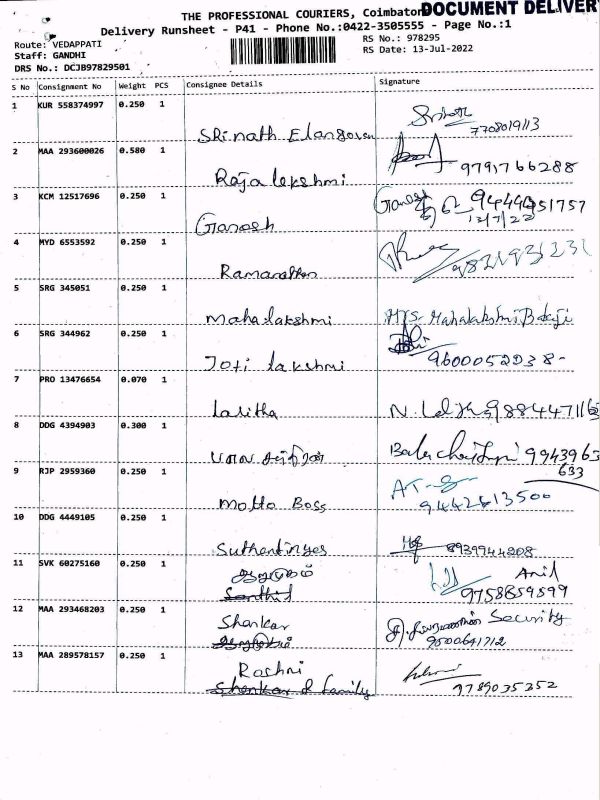 THE PROFESSIONAL COURIERS, Coimbator DOCUMENT DELIVER
Delivery Runsheet - P41 - Phone No.:0422-3505555 - Page No.:1
Route: VEDAPPATI
RS No.: 978295
Staff: GANDHI
RS Date: 13-Jul-2022
DRS No.: DCJB97829501
S No Consignment No Weight PCS Consignee Details Signature
1 KUR 558374997 0.250 1
Srinath Elangovan Srinath 7708019113
2 MAA 293600026 0.580 1
Rajalekshmi 9791766288
3 KCM 12517696 0.250 1
Ganesh Ganesh 12/7/22
4 MYD 6553592 0.250 1
5 SRG 345051 0.250 1
Mahalakshmi Mrs. Mahalakshmi Balaji
6 SRG 344962 0.250 1
Joti lakshmi 9600052038-
7 PRO 13476654 0.070 1
Lalitha
8 DDG 4394903 0.300 1
9943963
633
9 RJP 2959360 0.250 1
Motto Boss 9442613500
10 DDG 4449105 0.250 1
8939944208
11 SVK 60275160 0.250 1
ஆறுமுகம் Anil
Senthil 9758659599
12 MAA 293468203 0.250 1
Shankar Security
ஆறுமுகம் 9500641712
13 MAA 289578157 0.250 1
Roshni
Shankar & family 9789035352